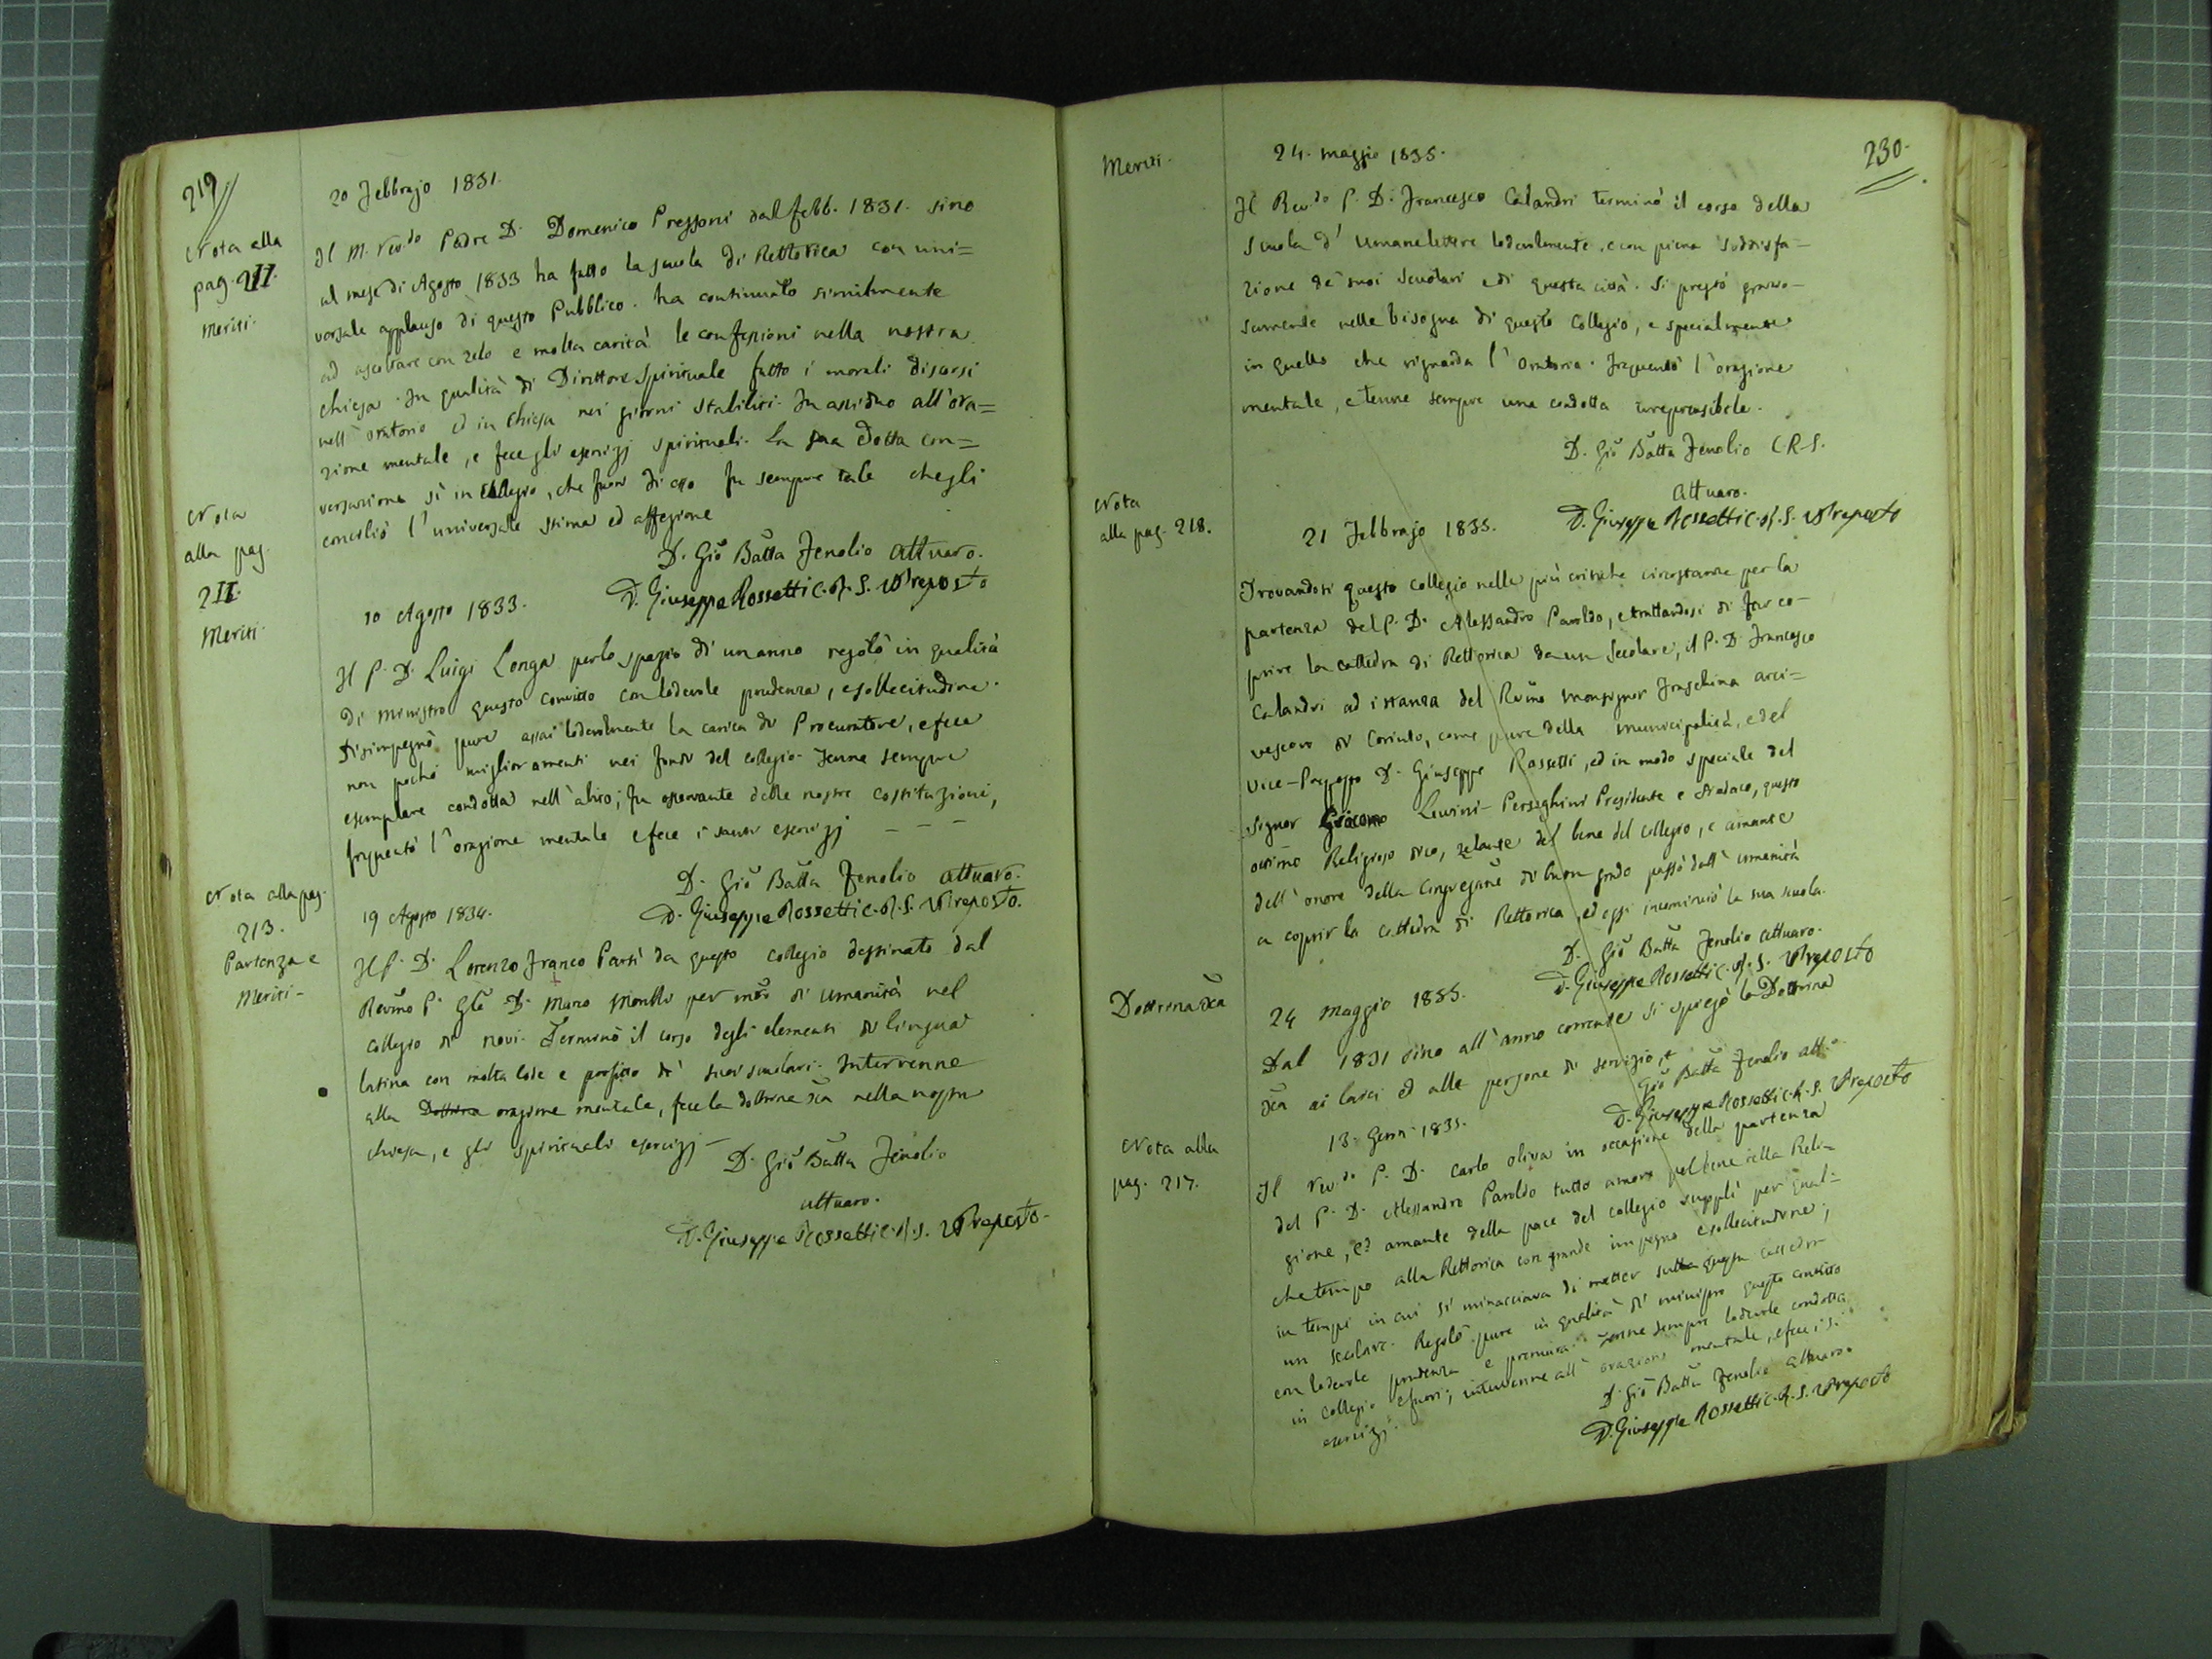 219
Nota alla
pag. 211.
Meriti.
20 Febbrajo 1831.
Il M. Rev.do Padre D. Domenico Pressoni dal febb. 1831. sino
al mese di Agosto 1833 ha fatto la scuola di Rettorica con uni=
versale applauso di questo Pubblico. ha continuato similmente
ad ascoltare con zelo e molta carità le confessioni nella nostra
chiesa. In qualità di Direttore Spirituale fatto i morali discorsi
nell'oratorio ed in chiesa nei giorni stabiliti. Fu assiduo all'ora=
zione mentale, e fece gli esercizj spirituali. La sua dotta con=
versazione sì in Collegio, che fuori di esso fu sempre tale che gli
conciliò l'universale stima ed affezione
D. Gio Batta Fenolio Attuaro.
D. Giuseppe Rossetti C.R.S. VPreposto
Nota
alla pag.
211.
Meriti.
10 Agosto 1833.
Il P. D. Luigi Longa perlo spazio di un anno regolò in qualità
di Ministro questo convitto con lodevole prudenza, e sollecitudine.
Disimpegnò pure assai lodevolmente la carica di Procuratore, e fece
non pochi miglioramenti nei fondi del collegio. Tenne sempre
esemplare condotta nell'altro; fu osservante delle nostre costituzioni,
frequentò l'orazione mentale e fece i santi esercizj - - -
D. Gio Batta Fenolio Attuaro.
D. Giuseppe Rossetti C.R.S. VPreposto.
Nota alla pag.
213.
Partenza e
Meriti-
19 Agosto 1834.
Il P. D. Lorenzo Franco Partì da questo collegio destinato dal
Revmo P. Gle D. Marco Morelli per mro di umanità nel
collegio di Novi. Terminò il corso degli elementi di lingua
latina con molta lode e profitto de' suoi scuolari. Intervenne
alla Dottrina orazione mentale, fece la dottrina Xna nella nostra
chiesa, e gli spirituali esercizj -
D. Gio Batta Fenolio
attuaro.
D. Giuseppe Rossetti C.R.S. VPreposto.
230.
Meriti.
24. maggio 1835.
Il Rev.do P. D. Francesco Calandri terminò il corso della
scuola d'umane lettere lodevolmente, e con piena soddisfa=
zione de' suoi scuolari e di questa città. Si prestò grazio=
samente nelle bisogna di questo Collegio, e specialmente
in quello che riguarda l'Oratorio. Frequentò l'orazione
mentale, e tenne sempre una condotta irreprensibile.
D. Gio Batta Fenolio C.R.S.
Attuaro.
D. Giuseppe Rossetti C.R.S. VPreposto
Nota
alla pag. 218.
21 Febbrajo 1835.
Trovandosi questo collegio nelle più critiche circostanze per la
partenza del P. D. Alessandro Paroldo, e trattandosi di far co=
prire la cattedra di Rettorica da un Secolare, il P. D. Francesco
Calandri ad istanza del Rvmo Monsignor Fraschina arci=
vescovo di Corinto, come pure della municipalità, e del
Vice-Preposto D. Giuseppe Rossetti, ed in modo speciale del
Signor Giacomo Luvini-Perseghini Presidente e Sindaco, questo
ottimo Religioso dico, zelante del bene del collegio, e amante
dell'onore della Congregane di buon grado passò dall'umanità
a coprir la cattedra di Rettorica, ed oggi incominciò la sua scuola.
D. Gio Batta Fenolio attuaro.
D. Giuseppe Rossetti C.R.S. VPreposto
Dottrina Xna
24 maggio 1835.
Dal 1831 sino all'anno corrente si spiegò la Dottrina
Xna ai laici ed alle persone di servizio,
Gio Batta Fenolio att.o
D. Giuseppe Rossetti C.R.S. VPreposto
Nota alla
pag. 217.
13 Genn. 1835.
Il Rev.do P. D. Carlo Oliva in occasione della partenza
del P. D. Alessandro Paroldo tutto amore pel bene della Reli=
gione, ed amante della pace del collegio supplì per qual=
che tempo alla Rettorica con grande impegno e sollecitudine;
in tempi in cui si minacciava di metter sulla questa cattedra
un secolare. Regolò pure in qualità di ministro questo convitto
con lodevole prudenza e premura. Tenne sempre lodevole condotta
in collegio e fuori; intervenne all'orazione mentale, e fece i S.
esercizj.
D. Gio Batta Fenolio attuaro.
D. Giuseppe Rossetti C.R.S. VPreposto